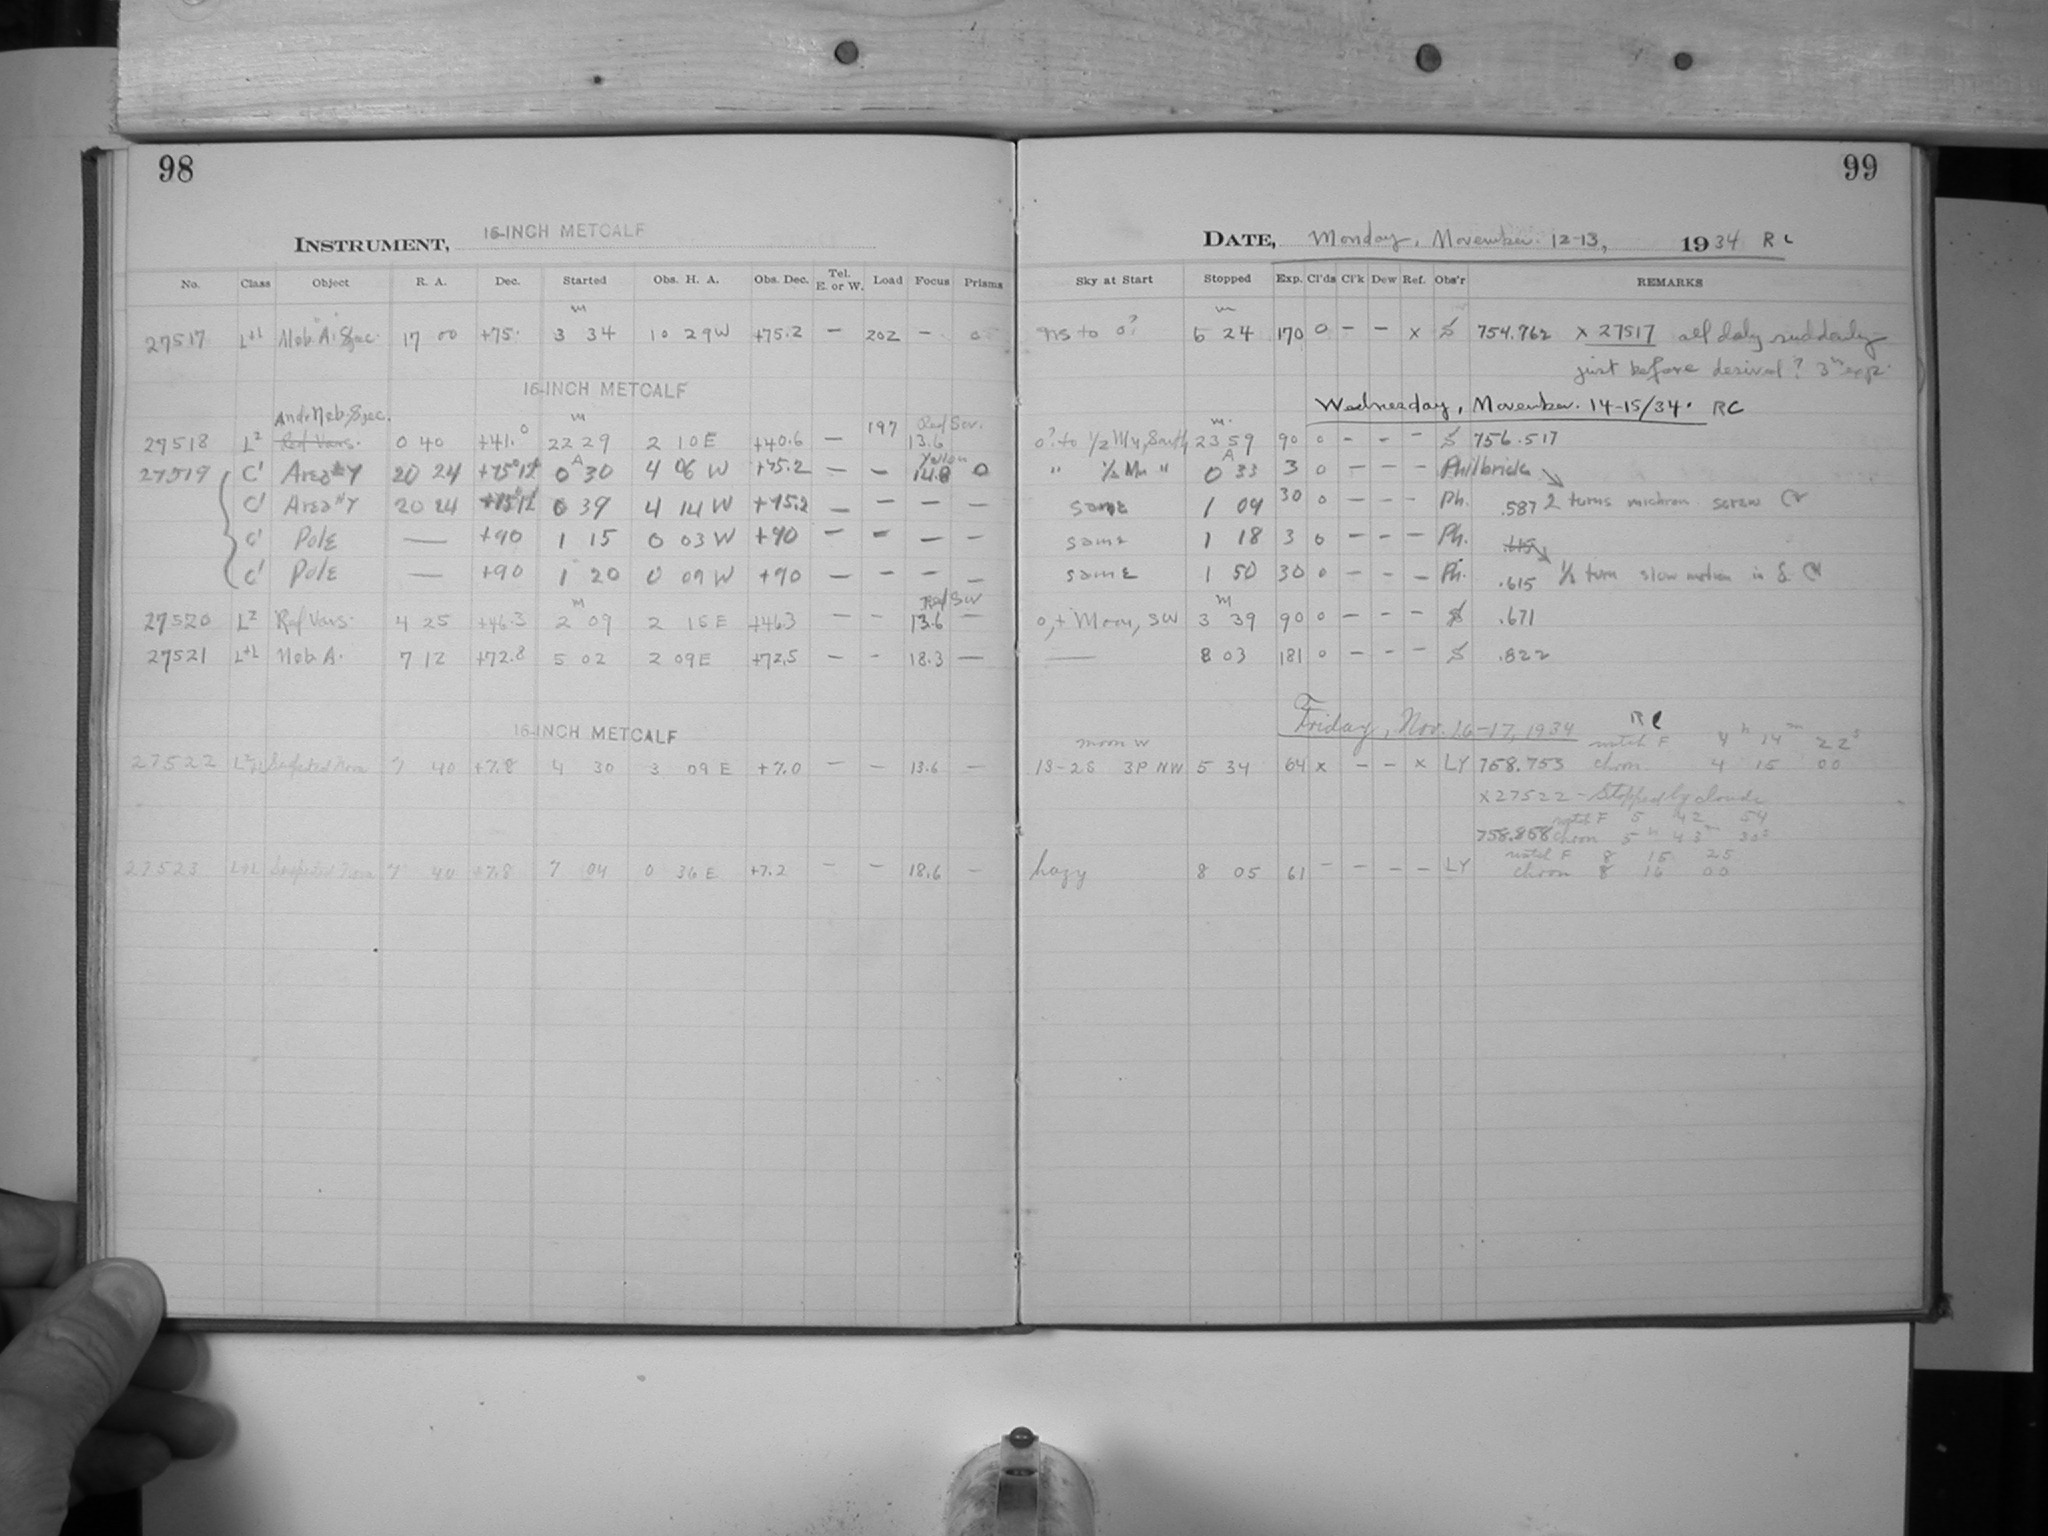 98
INSTRUMENT, 16-INCH METCALF
No. Class Object R. A. Dec. Started Obs. H. A. Obs. Dec. Tel. E. or W. Load Focus Prisms
27517 Neb. A. Spec. 17 00 +75. 3 34 10 29 W +75.2 — 202 — 0
16-INCH METCALF
Andr Neb. Spec.
27518 L2 Ref Vars. 0 40 +41.0 22 29 2 10 E +40.6 — 197 13.6
27519 C1 Area #Y 20 24 0 30 4 06 W +75.2 — — 14.8 0
C1 Area #Y 20 24 0 39 4 14 W +75.2 — — — —
C1 Pole — +90 1 15 0 03 W +90 — — — —
C1 Pole — +90 1 20 0 09 W +90 — — — —
27520 L2 Ref Vars. 4 25 +46.3 2 09 2 15 E +46.3 — — 13.6 —
27521 Neb. A. 7 12 +72.8 5 02 2 09 E +72.5 — - 18.3 —
16-INCH METCALF
27522 Suspected Nova 7 40 +7.8 4 30 3 09 E +7.0 — — 13.6 —
27523 Suspected Nova 7 40 +7.8 7 04 0 36 E +7.2 — — 18.6 —
99
DATE, Monday, November 12-13, 1934 RC
Sky at Start Stopped Exp. Cl'ds Cl'k Dew Ref. Obs'r REMARKS
to 0? 24 170 0 - - x 754.762 x 27517 suddenly
just before 3m exp.
Wednesday, November 14-15/34. RC
0? to 1/2 23 59 90 0 - - - 756.517
" 1/2 Mn " 0 33 3 0 - - - Philbrick
same 1 09 30 0 - - - Ph. .587 2 turns screw
same 1 18 3 0 - - - Ph.
same 1 50 30 0 - - - Ph. .615 1/2 turn slow motion in
0, + Moon, SW 3 39 90 0 - - - .671
— 8 03 181 0 - - - .822
Friday, Nov. 16-17, 1934 RC
moon W watch F 4h 14m 22s
1S-2S 3P NW 5 34 64 x - - x LY 758.753 chron 4 15 00
x 27522 - Stopped by clouds
watch F 5 42 54
758.868 chron 5h 43m 30s
watch F 8 15 25
hazy 8 05 61 - - - - LY chron 8 16 00